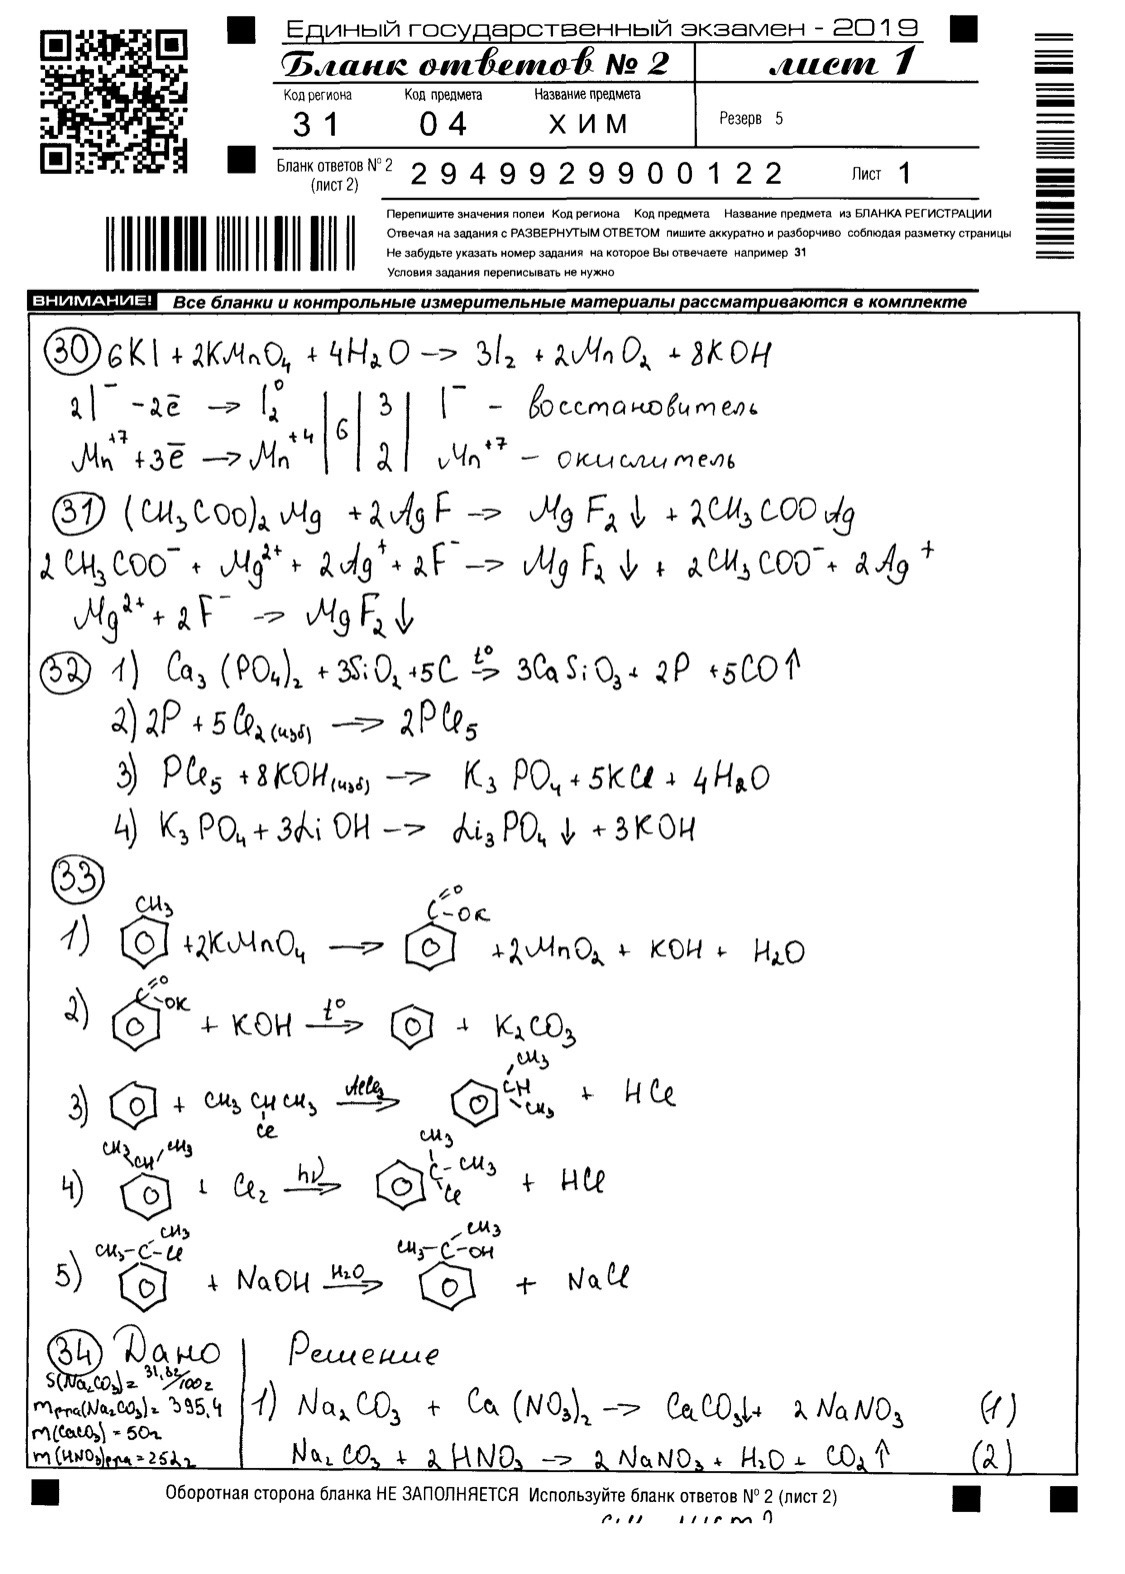 Единый государственный экзамен - 2019
Бланк ответов № 2 лист 1
Код региона Код предмета Название предмета
31 04 ХИМ Резерв 5
Бланк ответов № 2 (лист 2) 2949929900122 Лист 1
Перепишите значения полеи Код региона Код предмета Название предмета из БЛАНКА РЕГИСТРАЦИИ
Отвечая на задания с РАЗВЕРНУТЫМ ОТВЕТОМ пишите аккуратно и разборчиво соблюдая разметку страницы
Не забудьте указать номер задания на которое Вы отвечаете например 31
Условия задания переписывать не нужно
ВНИМАНИЕ! Все бланки и контрольные измерительные материалы рассматриваются в комплекте
30 6KI + 2KMnO₄ + 4H₂O → 3I₂ + 2MnO₂ + 8KOH
2I⁻ - 2ē → I₂⁰ | 6 | 3 | I⁻ - восстановитель
Mn⁺⁷ + 3ē → Mn⁺⁴ | | 2 | Mn⁺⁷ - окислитель
31 (CH₃COO)₂Mg + 2AgF → MgF₂↓ + 2CH₃COOAg
2CH₃COO⁻ + Mg²⁺ + 2Ag⁺ + 2F⁻ → MgF₂↓ + 2CH₃COO⁻ + 2Ag⁺
Mg²⁺ + 2F⁻ → MgF₂↓
32 1) Ca₃(PO₄)₂ + 3SiO₂ + 5C t° → 3CaSiO₃ + 2P + 5CO↑
2) 2P + 5Cl₂(изб) → 2PCl₅
3) PCl₅ + 8KOH(изб) → K₃PO₄ + 5KCl + 4H₂O
4) K₃PO₄ + 3LiOH → Li₃PO₄↓ + 3KOH
33
CH₃ C=O -OK
1) + 2KMnO₄ → + 2MnO₂ + KOH + H₂O
C=O -OK
2) + KOH t° → + K₂CO₃
CH₃
3) + CH₃CHCH₃ AlCl₃ → CH + HCl
Cl CH₃
CH₃ CH CH₃ CH₃
4) + Cl₂ hν → C-CH₃ + HCl
Cl
CH₃ CH₃
CH₃-C-Cl CH₃-C-OH
5) + NaOH H₂O → + NaCl
34 Дано Решение
S(Na₂CO₃)= 31,8г/100г
mр-ра(Na₂CO₃)= 395,4
1) Na₂CO₃ + Ca(NO₃)₂ → CaCO₃↓ + 2NaNO₃ (1)
m(CaCO₃) = 50г
m(HNO₃)р-ра=252г
Na₂CO₃ + 2HNO₃ → 2NaNO₃ + H₂O + CO₂↑ (2)
Оборотная сторона бланка НЕ ЗАПОЛНЯЕТСЯ Используйте бланк ответов № 2 (лист 2)